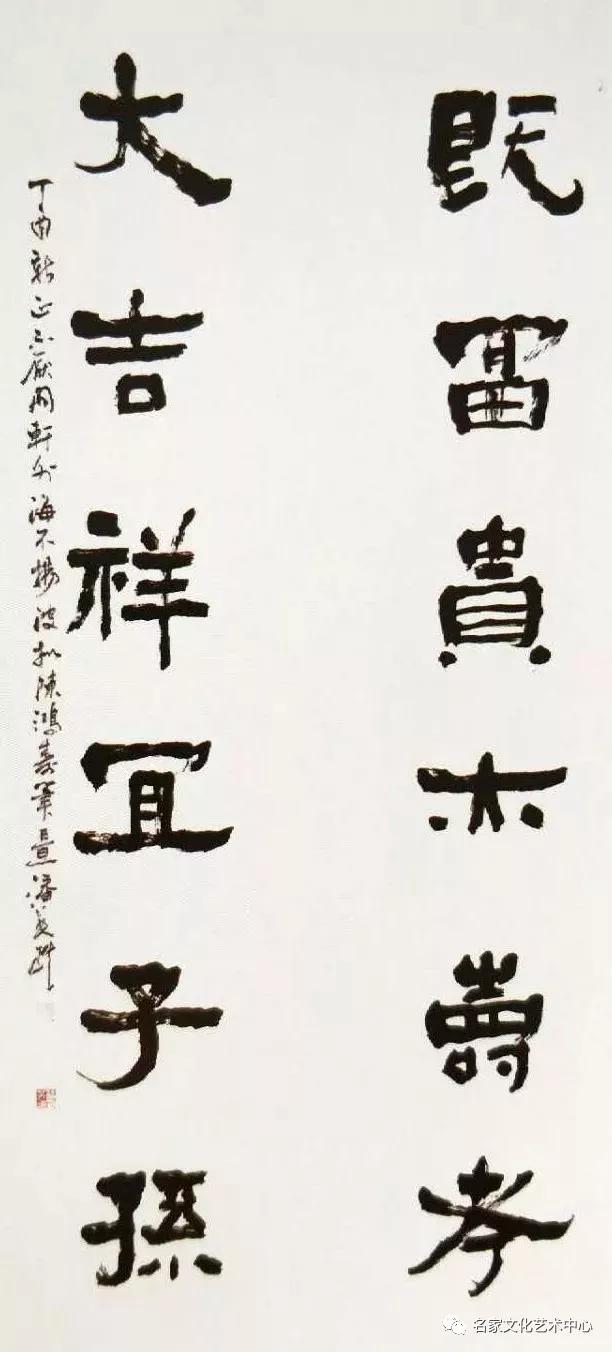 既富貴亦壽考
大吉祥宜子孫
丁酉新正不厭 軒 海不揚波拟陳鴻壽筆意潘
名家文化艺术中心